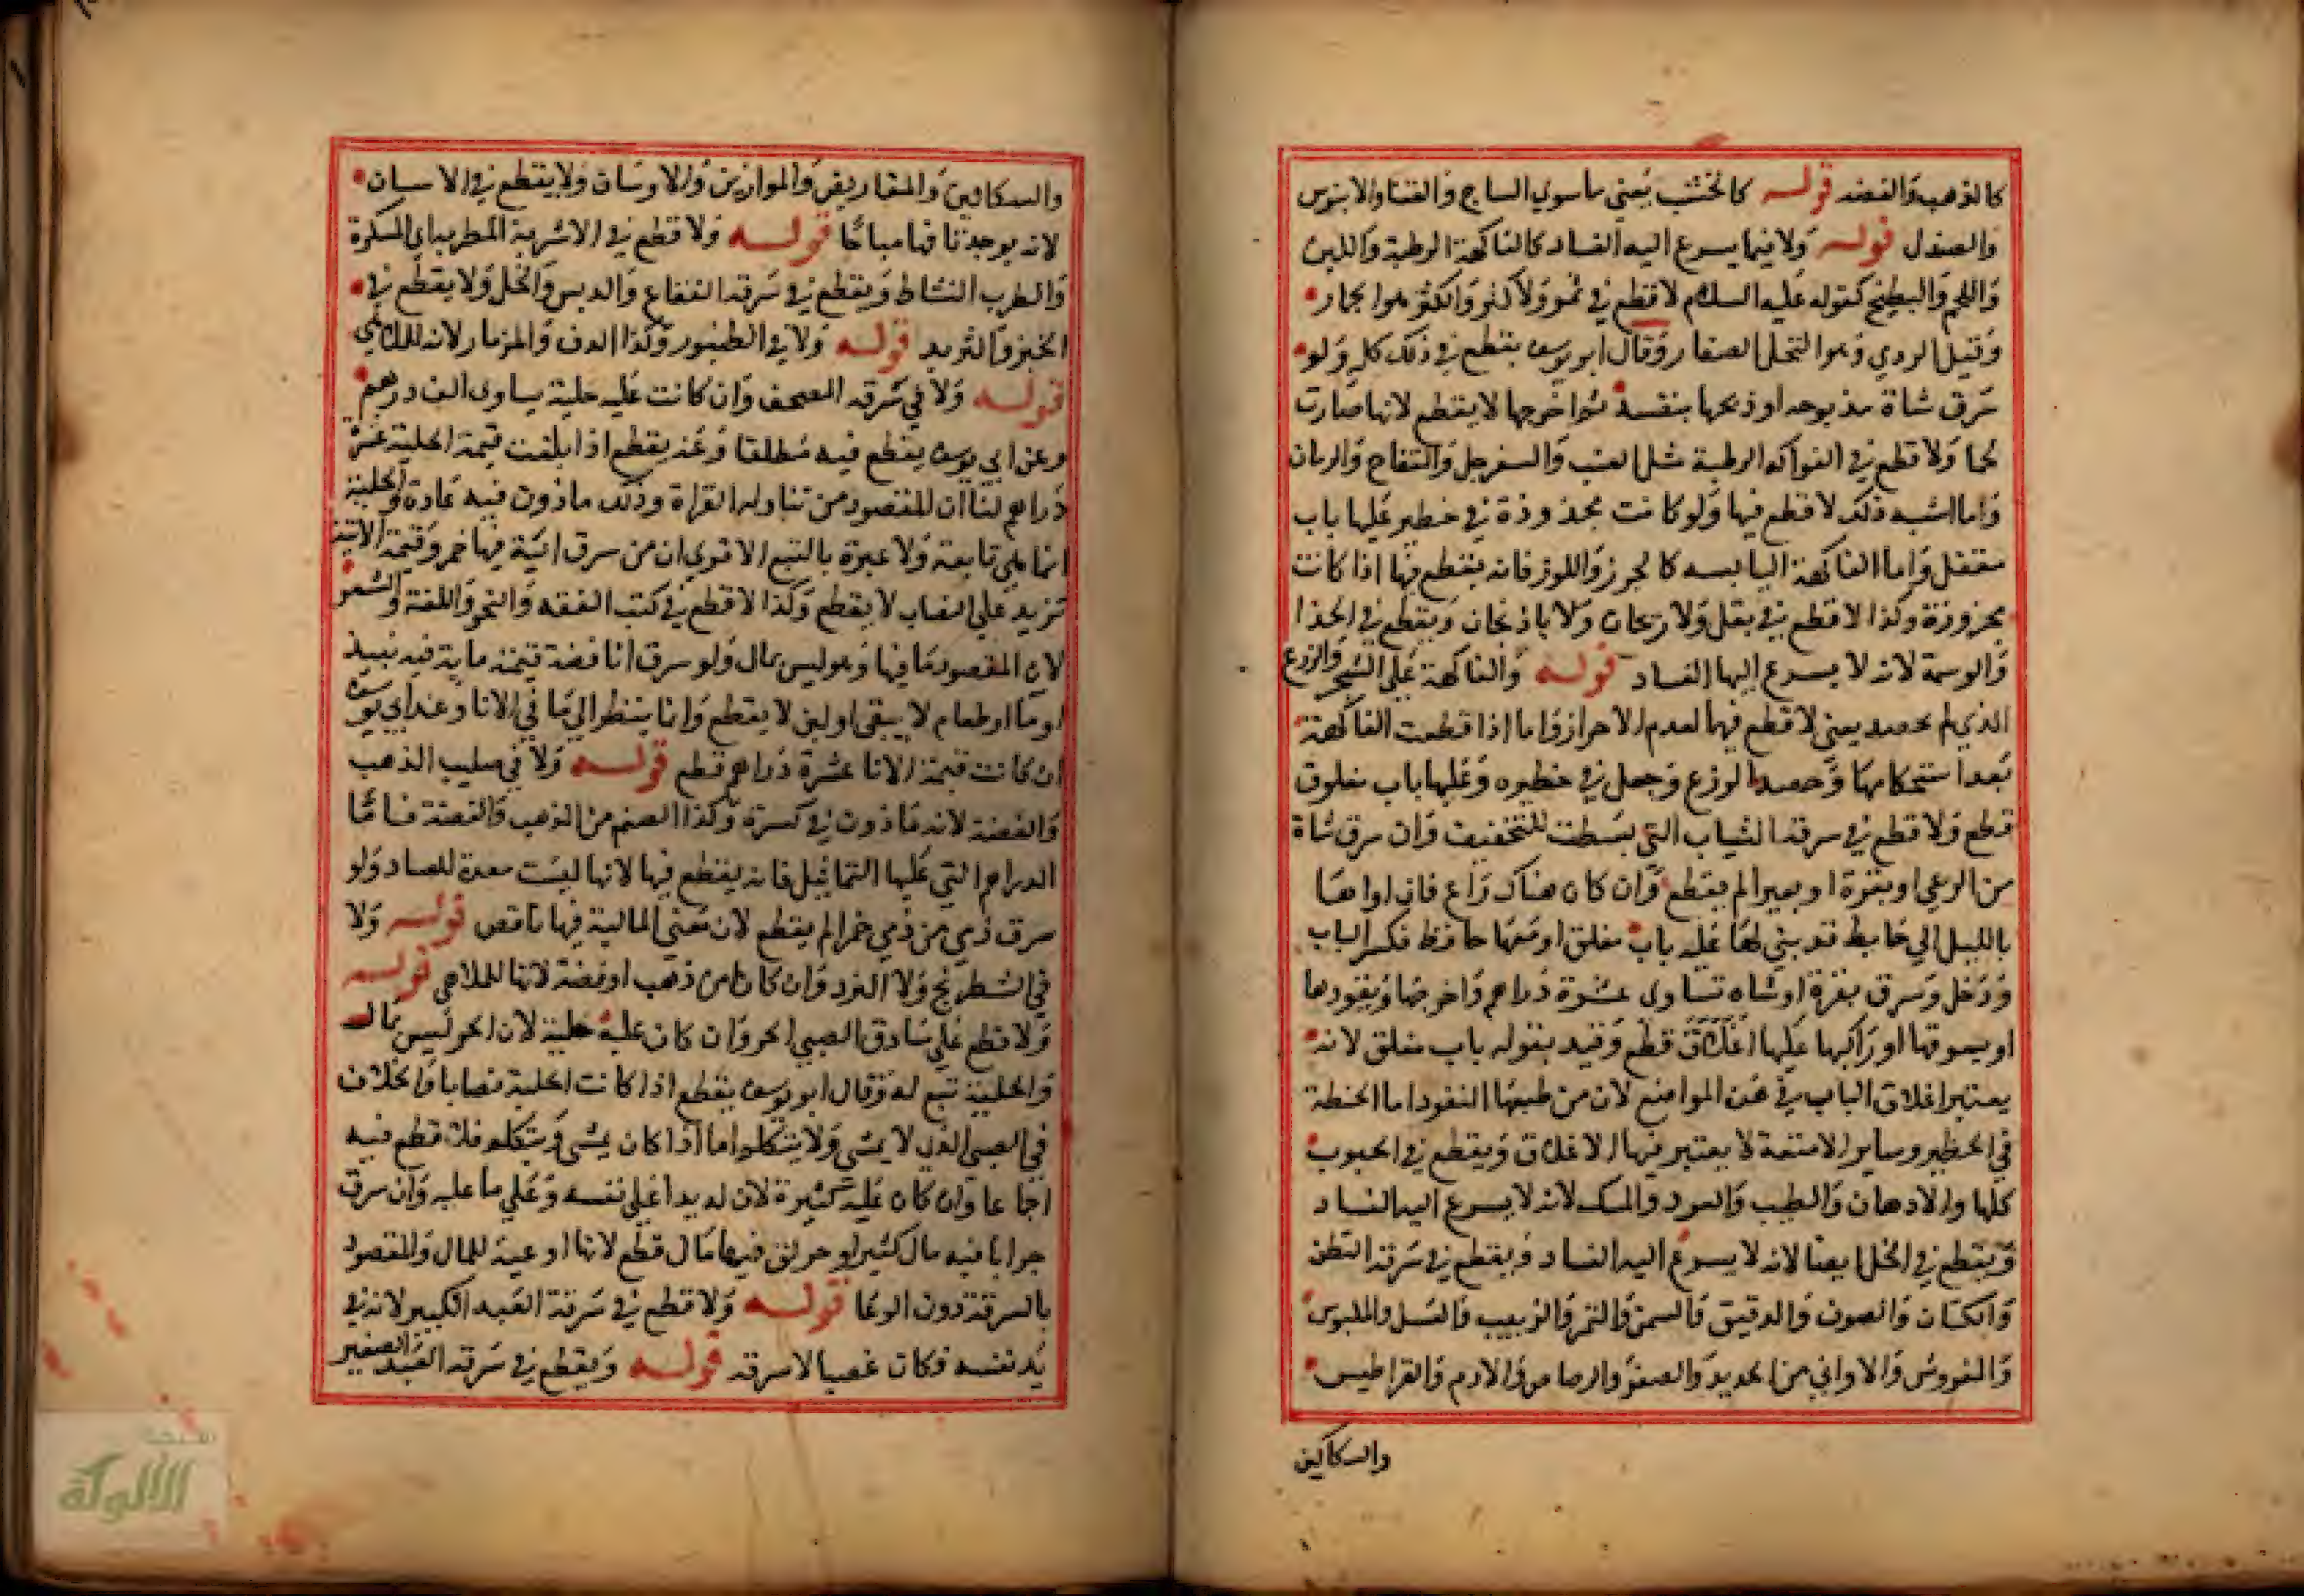 كالذهب والفضه قوله كالخشب يعني ماسوي الساج والقنا والابنوس
والصندل قوله ولا فيما يسرع اليه الفساد كالفاكهة الرطبة واللبن
واللحم والبطيخ كقوله عليه السلام لا قطع في ثمر ولا كثر والكثر هوا لجمار
وقيل الودي وهوا النخل الصغار وقال ابو يوسف يقطع في ذلك كله ولو
سرق شاة مذبوحه او ذبحها بنفسه ثم اخرجها لا يقطع لانها صارت
لحما ولا قطع في الفواكه الرطبة مثل العنب والسفرجل والتفاح والرمان
وما اشبه ذلك لا قطع فيها ولو كانت مجذوذة في حظير عليها باب
مقفل واما الفاكهة اليابسه كالجوز واللوز فانه يقطع فيها اذا كانت
محروزة وكذا لا قطع في بقل ولا ريحان ولا باذنجان ويقطع في الحنا
والوسمة لانه لا يسرع اليها الفساد قوله والفاكهة علي الشجر والزرع
الذي لم يحصد يعني لا قطع فيها لعدم الاحراز واما اذا قطعت الفاكهة
بعد استحكامها وحصد الزرع وجعل في حظيره وعليها باب مغلوق
قطع ولا قطع في سرقة الثياب التي بسطت للتخفيف وان سرق شاة
من الرعي او بقرة او بعيرا لم يقطع وان كان هناك راع فان اواها
بالليل الي حايط قد بني لها عليه باب مغلق او معها حافظ فكسر الباب
ودخل وسرق بقرة او شاه تساوي عشرة دراهم واخرجها ويقودها
او يسوقها او راكبها عليها اغلاق قطع وقيد بقوله باب مغلق لانه
يعتبر اغلاق الباب في هذه المواضع لان من طبعها النفود اما الحنطة
في الحظير وساير الامتعة لا يعتبر فيها الاغلاق ويقطع في الحبوب
كلها والادهان والطيب والعود والمسك لانه لا يسرع اليه الفساد
ويقطع في الخل ايضا لانه لا يسرع اليه الفساد ويقطع في سرقة القطن
والكتان والصوف والدقيق والسمن والتمر والزبيب والعسل والملبوس
والفروش والاواني من الحديد والصفر والرصاص والادم والقراطيس
والسكاكين
والسكاكين والمقاريض والموازين والارسان ولا يقطع في الاسنان
لانه يوجد تافها مباحا قوله ولا قطع في الاشربة المطربة اي المسكرة
والطرب النشاط ويقطع في سرقة الفقاع والدبس والخل ولا يقطع في
الخبز والثريد قوله ولا في الطنبور وكذا الدف والمزمار لانه للملاهي
قوله ولا في سرقه المصحف وان كانت عليه حلية يساوي الف درهم
وعن ابي يوسف يقطع فيه مطلقا وعنه يقطع اذا بلغت قيمة الحلية عشرة
دراهم لنا ان المقصود من تناوله القراة وذلك ماذون فيه عادة والحلية
انما هي تابعة ولا عبرة بالتبع الا تري ان من سرق انية فيها خمر وقيمة الانية
تزيد علي النصاب لا يقطع وكذا لا قطع في كتب الفقه والنحو واللغة والشعر
لان المقصود ما فيها وهو ليس بمال ولو سرق انا فضة قيمته ماية فيه نبيذ
او ما او طعام لا يبقي او لبن لا يقطع وانا ينظر الي ما في الانا وعند ابي يوسف
ان كانت قيمة الانا عشرة دراهم قطع قوله ولا في صليب الذهب
والفضة لانه ماذون في كسره وكذا الصنم من الذهب والفضة فاما
الدراهم التي عليها التماثيل فانه يقطع فيها لانها ليست معدة للعباد ولو
سرق ذمي من ذمي خمرا لم يقطع لان معني المالية فيها ناقص قوله ولا
في الشطرنج ولا النرد وان كانا من ذهب او فضة لانها للملاهي قوله
ولا قطع علي سارق الصبي الحر وان كان عليه حلية لان الحر ليس بمال
والحلية تبع له وقال ابو يوسف يقطع اذا كانت الحلية نصابا والخلاف
في الصبي الذي لا يمشي ولا يتكلم اما اذا كان يمشي ويتكلم فلا قطع فيه
اجماعا وان كان عليه كثيرة لان له يدا علي نفسه وعلي ما عليه وان سرق
جرابا فيه مال كثير او جوالق فيها مال قطع لانها اوعية للمال والمقصود
بالسرقة دون الوعا قوله ولا قطع في سرقة العبد الكبير لانه في
يد نفسه فكان غصبا لا سرقة قوله ويقطع في سرقه العبد الصغير
شبكة
الألوكة